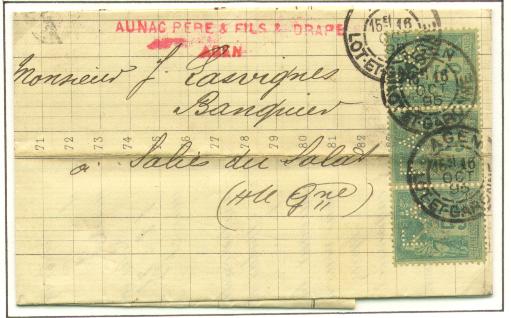 AUNAC PERE & FILS & DRAPE
AGEN
Monsieur J. Lasvignes
Banquier
à Salies du Salat
(Hte Gne)
71 72 73 74 75 76 77 78 79 80 81 82
15E 16
LOT-ET-
AGEN
16
OCT
95
LOT-ET-GARONNE
AGEN
15E 16
OCT
95
LOT-ET-GARONNE